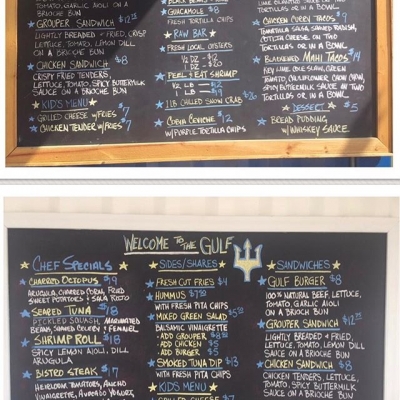 TOMATO, GARLIC AIOLI ON A
BRIOCHE BUN
GROUPER SANDWICH $12.25
LIGHTLY BREADED & FRIED, CRISP
LETTUCE, TOMATO, LEMON DILL
ON A BRIOCHE BUN
CHICKEN SANDWICH $8
CRISPY FRIED TENDERS,
LETTUCE, TOMATO, SPICY BUTTERMILK
SAUCE ON A BRIOCHE BUN
KID'S MENU
GRILLED CHEESE W/FRIES $7
CHICKEN TENDER W/FRIES $7
GUACAMOLE $8
FRESH TORTILLA CHIPS
RAW BAR
FRESH LOCAL OYSTERS
1/2 DZ
1 DZ
PEEL & EAT SHRIMP
1/2 LB
1 LB
1 LB CHILLED SNOW CRAB $26
COBIA CEVICHE $12
W/PURPLE TORTILLA CHIPS
TORTILLAS OR IN A BOWL
CHICKEN CURRY TACOS $9
TORTILLAS OR IN A BOWL
BLACKENED MAHI TACOS $14
KEY LIME COLE SLAW, GREEN
TORTILLAS OR IN A BOWL
DESSERT
BREAD PUDDING $5
W/ WHISKEY SAUCE
WELCOME TO THE GULF
CHEF SPECIALS
CHARRED OCTOPUS $19
ARUGULA, CHARRED CORN, FRIED
SWEET POTATOES & SALSA ROJO
SEARED TUNA $18
PICKLED SQUASH, MARINATED
BEANS, SHAVED CELERY & FENNEL
SHRIMP ROLL $18
SPICY LEMON AIOLI, DILL
ARUGULA
BISTRO STEAK $17
HEIRLOOM TOMATOES, ANCHO
VINAIGRETTE, AVOCADO YOGURT,
SIDES/SHARES
FRESH CUT FRIES $4
HUMMUS
WITH FRESH PITA CHIPS
MIXED GREEN SALAD
BALSAMIC VINAIGRETTE
- ADD GROUPER $8
- ADD CHICKEN $5
- ADD BURGER $5
SMOKED TUNA DIP $13
WITH FRESH PITA CHIPS
KID'S MENU
GRILLED CHEESE
SANDWICHES
GULF BURGER $8
100% NATURAL BEEF, LETTUCE,
TOMATO, GARLIC AIOLI
ON A BRIOCH BUN
GROUPER SANDWICH $12.25
LIGHTLY BREADED & FRIED,
LETTUCE, TOMATO, LEMON DILL
SAUCE ON A BRIOCHE BUN
CHICKEN SANDWICH $8
CHICKEN TENDERS, LETTUCE,
TOMATO, SPICY BUTTERMILK
SAUCE ON A BRIOCHE BUN